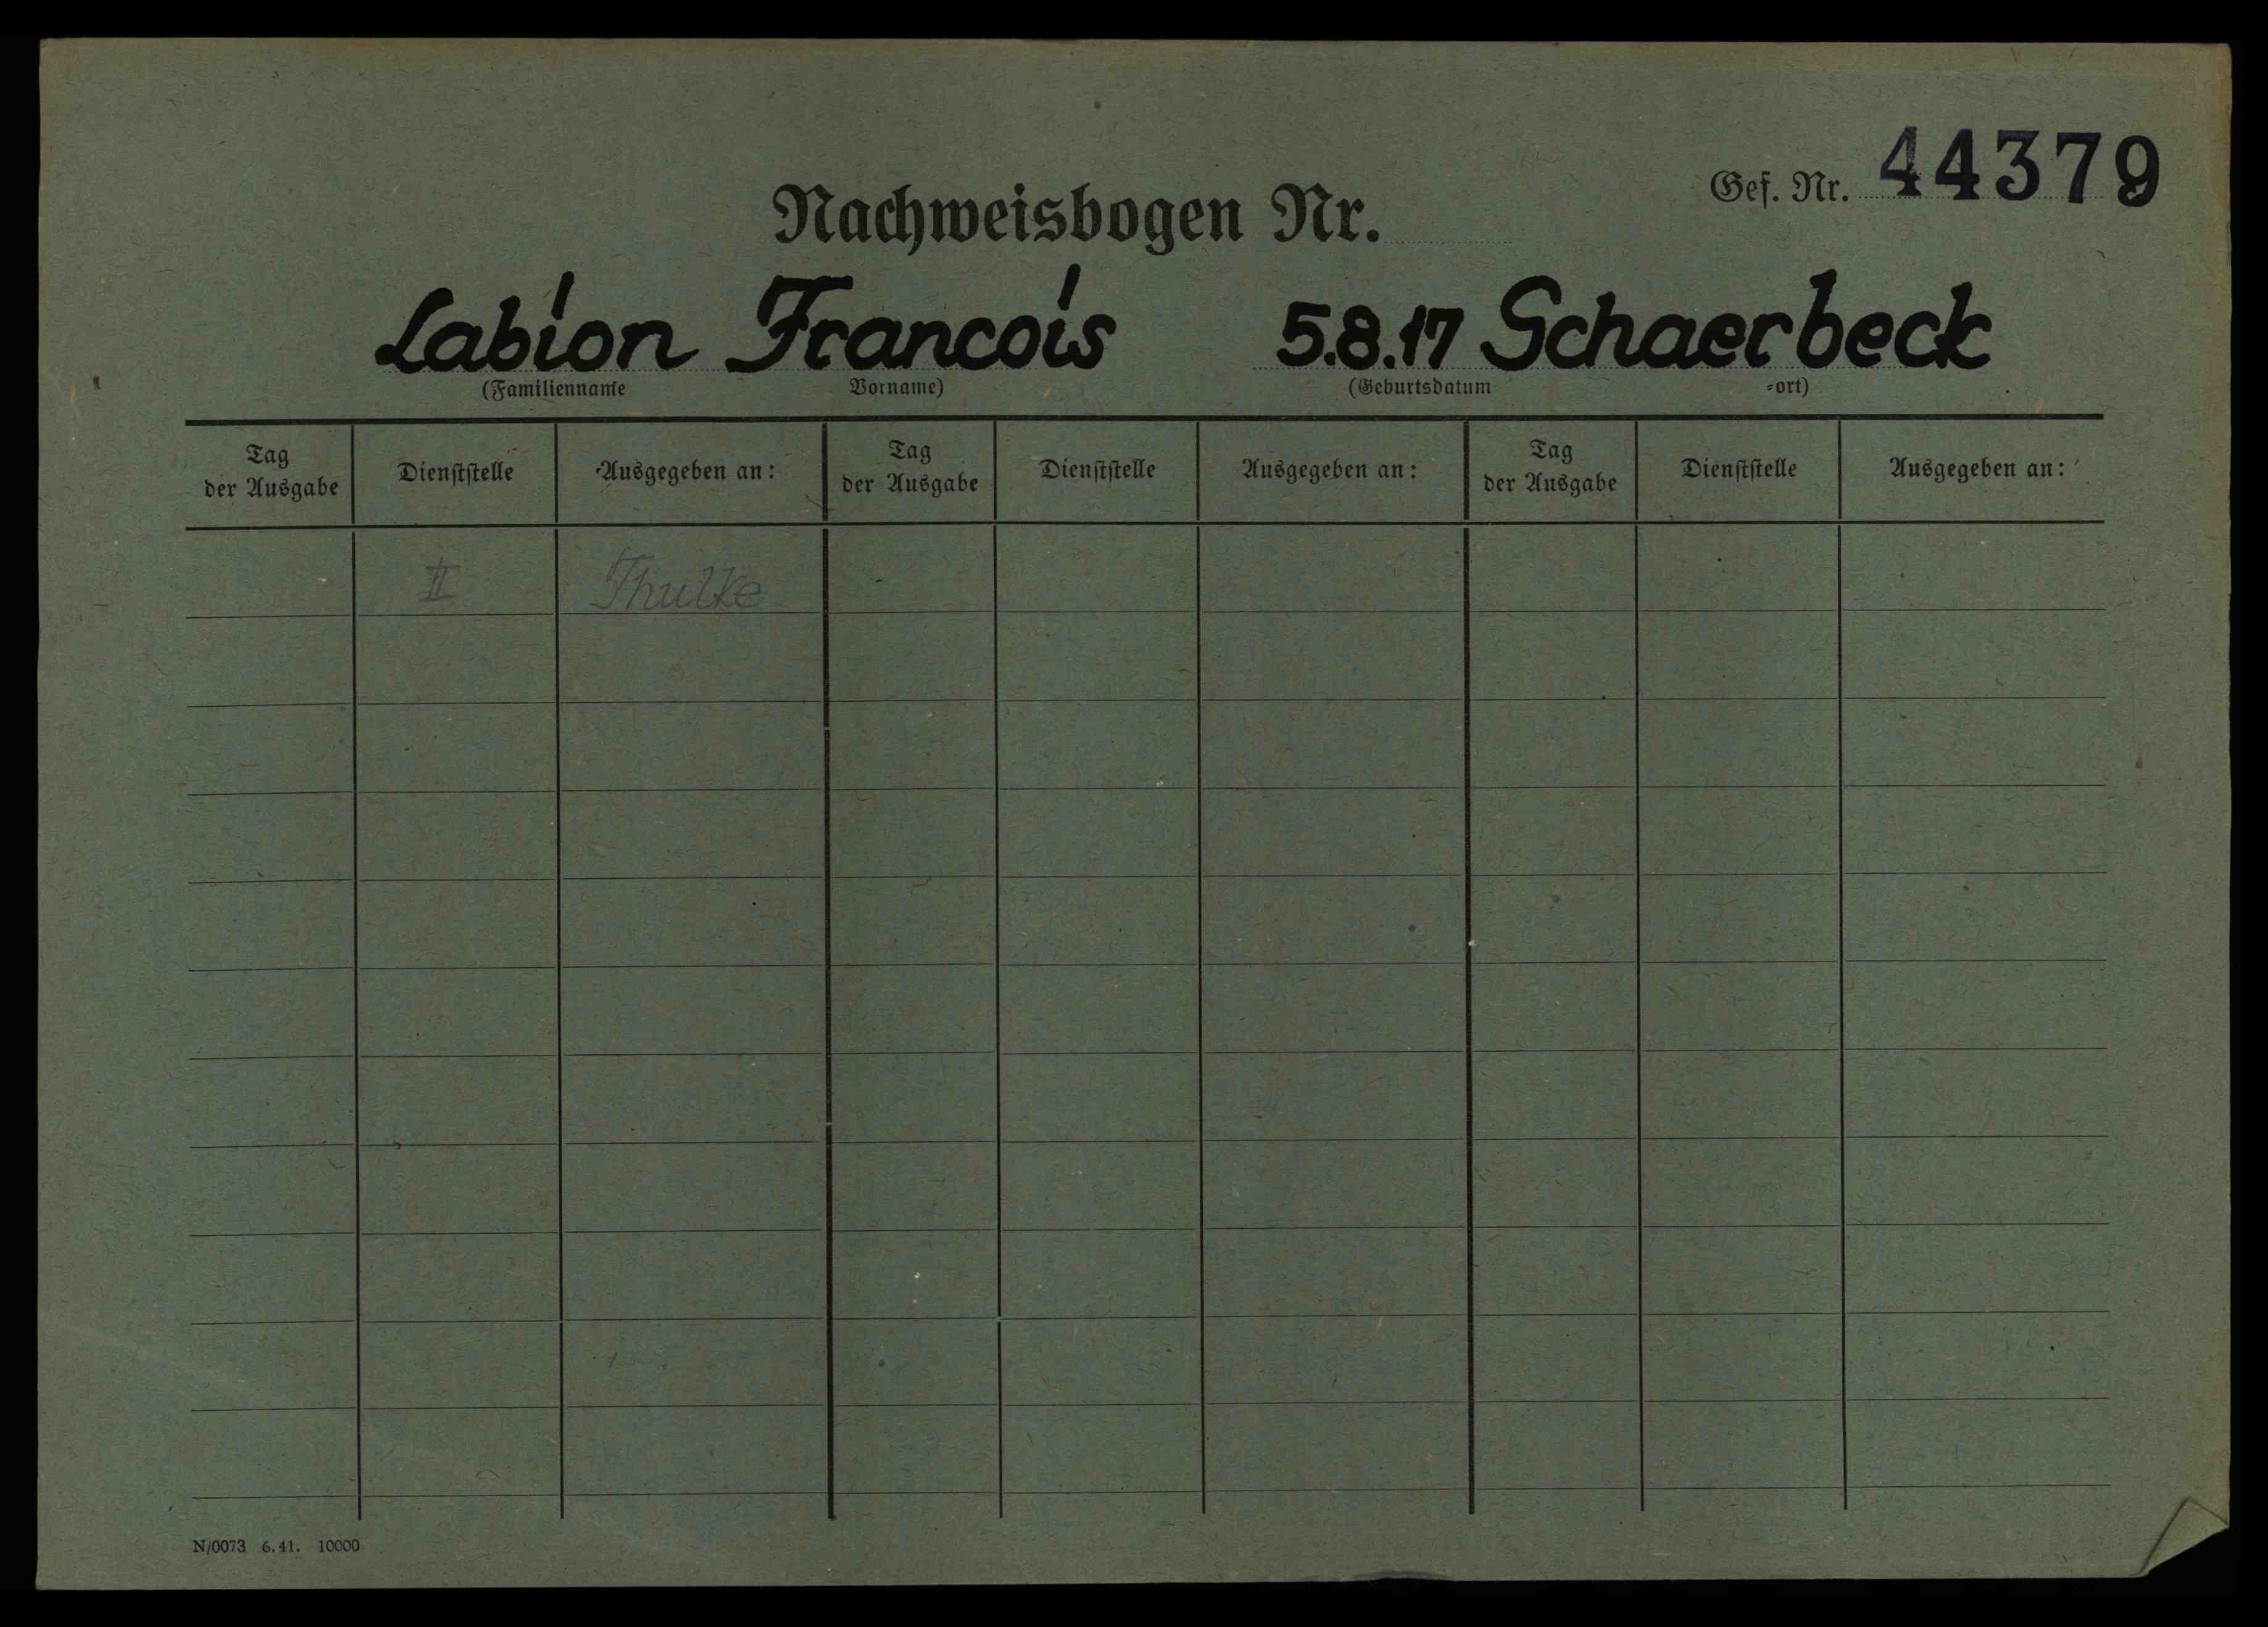 Gef. Nr. 44379
Nachweisbogen Nr.
Labion Francois 5.8.17 Schaerbeck
(Familienname Vorname) (Geburtsdatum =ort)
Tag der Ausgabe Dienststelle Ausgegeben an: Tag der Ausgabe Dienststelle Ausgegeben an: Tag der Ausgabe Dienststelle Ausgegeben an:
II Thulke
N/0073 6.41. 10000